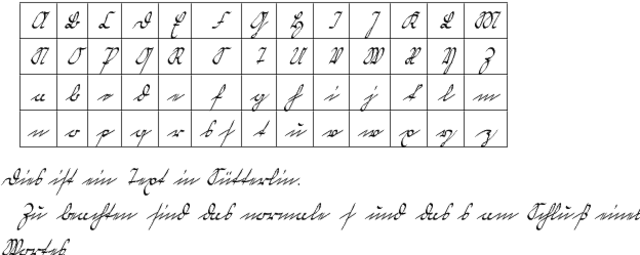 A B C D E F G H I J K L M
N O P Q R S T U V W X Y Z
a b c d e f g h i j k l m
n o p q r s ſ t u v w x y z
Dies iſt ein Text in Sütterlin.
Zu beachten ſind das normale ſ und das s am Schluß eines
Wortes